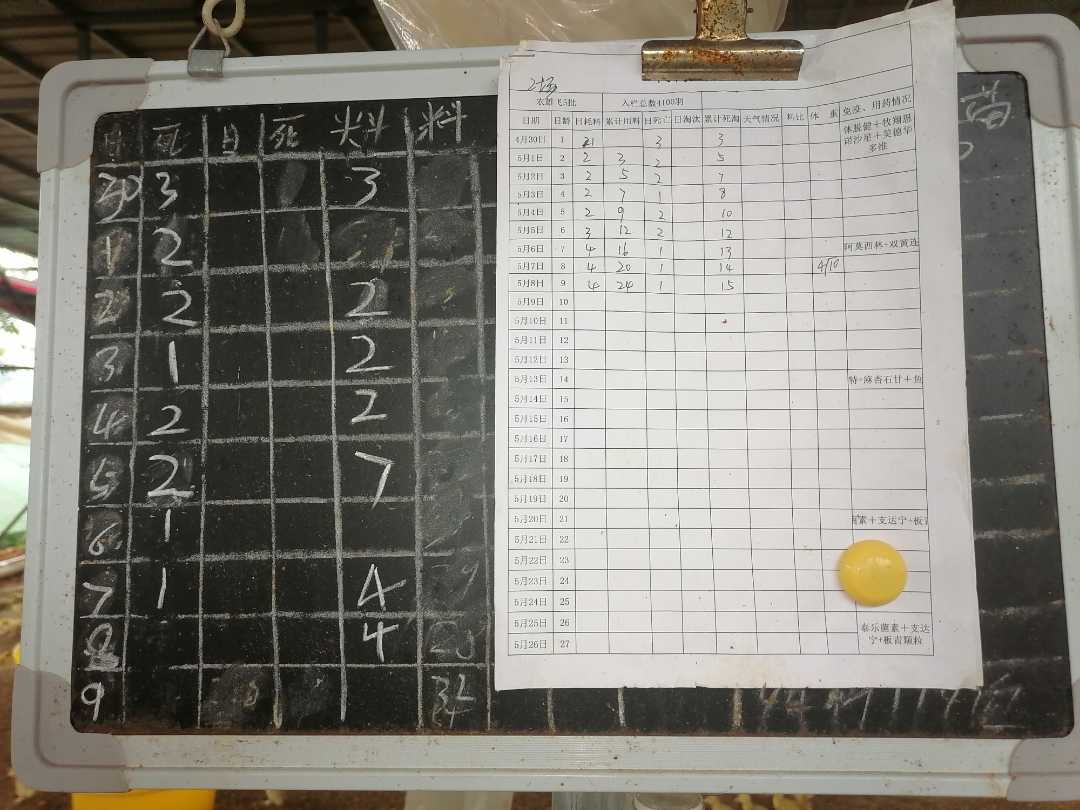 日 死 日 死 料 料 苗
30 3 3
1 2
2 2 2
3 1 2
4 2 2
5 2 7
6 1
7 1 4
8 4
9 34
入栏总数4100羽
日期 日龄 日耗料 累计用料 日死亡 日淘汰 累计死淘 天气情况 料比 体 重 免疫、用药情况
4月30日 1 3 3
5月1日 2 2 3 2 5
5月2日 3 2 5 2 7
5月3日 4 2 7 1 8
5月4日 5 2 9 2 10
5月5日 6 3 12 2 12
5月6日 7 4 16 1 13 阿莫西林+双黄连
5月7日 8 4 20 1 14
5月8日 9 4 24 1 15
5月9日 10
5月10日 11
5月11日 12
5月12日 13
5月13日 14 特+麻杏石甘+鱼
5月14日 15
5月15日 16
5月16日 17
5月17日 18
5月18日 19
5月19日 20
5月20日 21 素+支达宁+板
5月21日 22
5月22日 23
5月23日 24
5月24日 25
5月25日 26
5月26日 27
泰乐菌素+支达
宁+板青颗粒